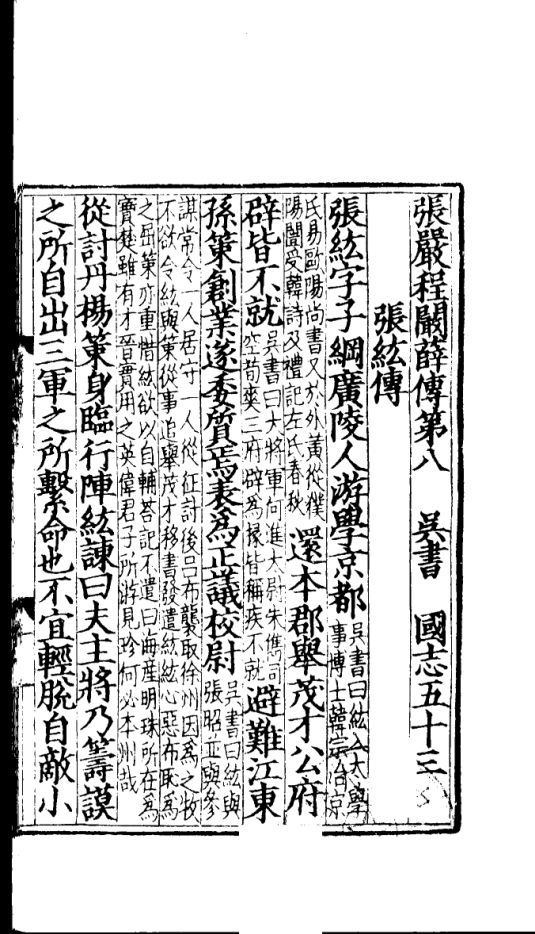 張嚴程闞薛傳第八　吳書　國志五十三
張紘傳
張紘字子綱廣陵人游學京都
吳書曰紘入太學
事博士韓宗治京
氏易歐陽尚書又於外黃從濮
陽闓受韓詩及禮記左氏春秋
還本郡舉茂才公府
辟皆不就
吳書曰大將軍何進太尉朱儁司
空荀爽三府辟為掾皆稱疾不就
避難江東
孫策創業遂委質焉表為正議校尉
吳書曰紘與
張昭並與參
謀常令一人居守一人從征討後呂布襲取徐州因為之牧
不欲令紘與策從事追舉茂才移書發遣紘紘心惡布恥為
之屈策亦重惜紘欲以自輔荅記不遣曰海產明珠所在為
寶楚雖有才晉實用之英偉君子所游見珍何必本州哉
從討丹揚策身臨行陣紘諫曰夫主將乃籌謨
之所自出三軍之所繫命也不宜輕脫自敵小